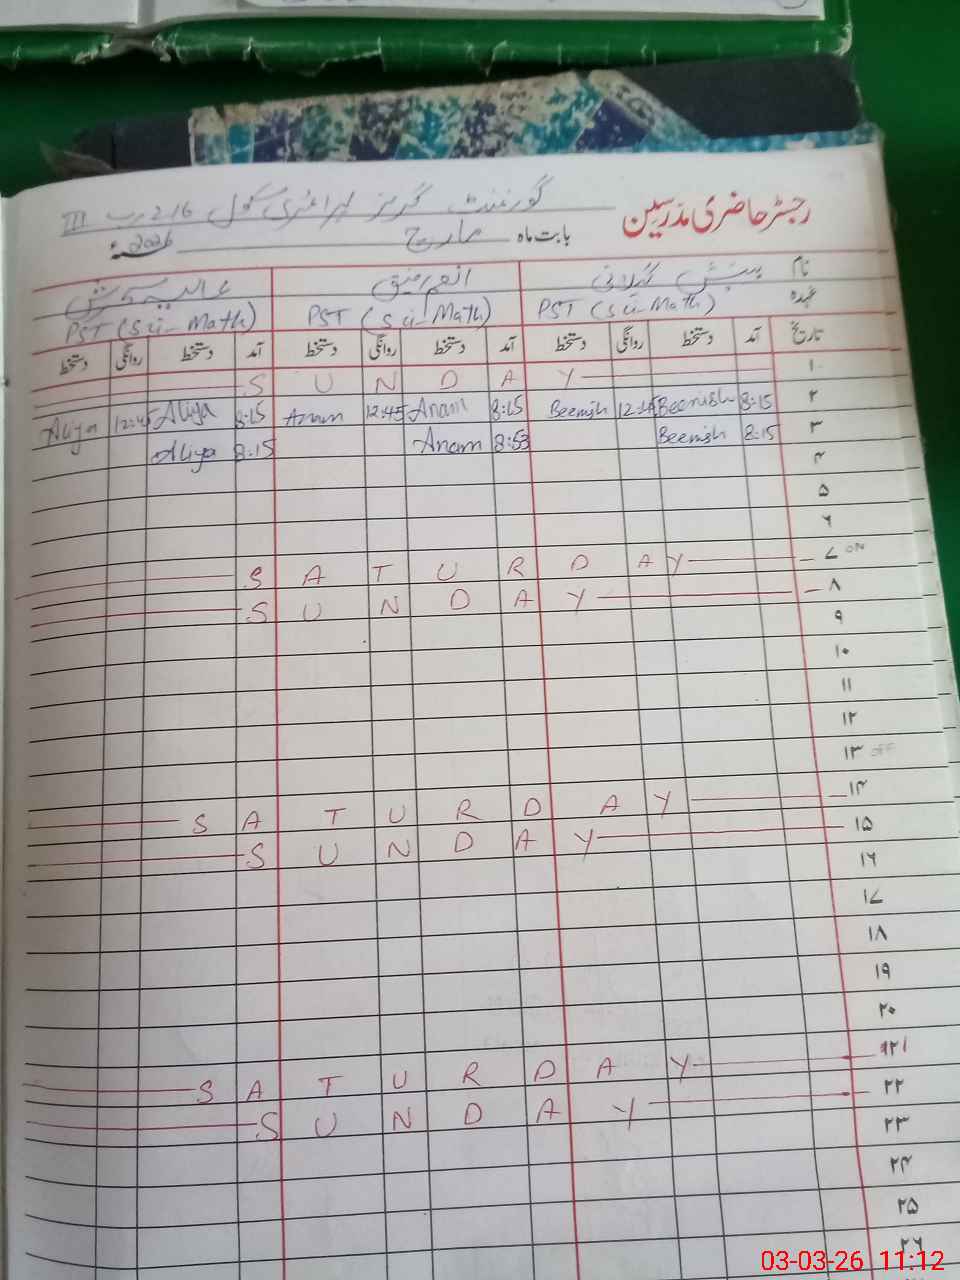 رجسٹر حاضری مدرسین گورنمنٹ گرلز پرائمری سکول 216 رب III
بابت ماہ مارچ 2026ء
نام بینش گیلانی انعم رفیق عالیہ
عہدہ PST (Sci-Math) PST (Sci-Math) PST (Sci-Math)
تاریخ آمد دستخط روانگی دستخط آمد دستخط روانگی دستخط آمد دستخط روانگی دستخط
۱ S U N D A Y
۲ 8:15 Beenish Beenish 8:15 Anam 12:45 Anam 8:15 Aliya 12:45 Aliya
۳ 8:15 Beenish 8:53 Anam 8:15 Aliya
۴
۵
۶
۷ ON S A T U R D A Y
۸ S U N D A Y
۹
۱۰
۱۱
۱۲
۱۳ OFF
۱۴ S A T U R D A Y
۱۵ S U N D A Y
۱۶
۱۷
۱۸
۱۹
۲۰
۲۱ S A T U R D A Y
۲۲ S U N D A Y
۲۳
۲۴
۲۵
۲۶
03-03-26 11:12